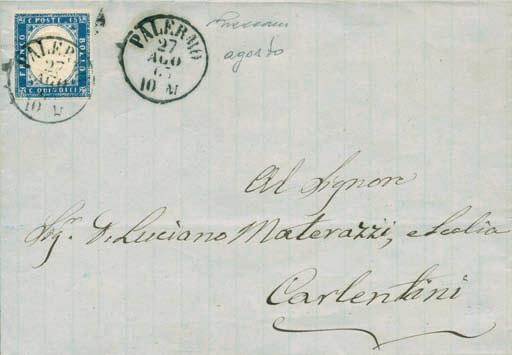 C. POSTE 15
FRANCO
BOLLO
C. QUINDICI
PALERMO
27
AGO
10 M
PALERMO
27
AGO
10 M
agosto
Al Signore
Sig.r D. Luciano Materazzi, e Scelia
Carlentini